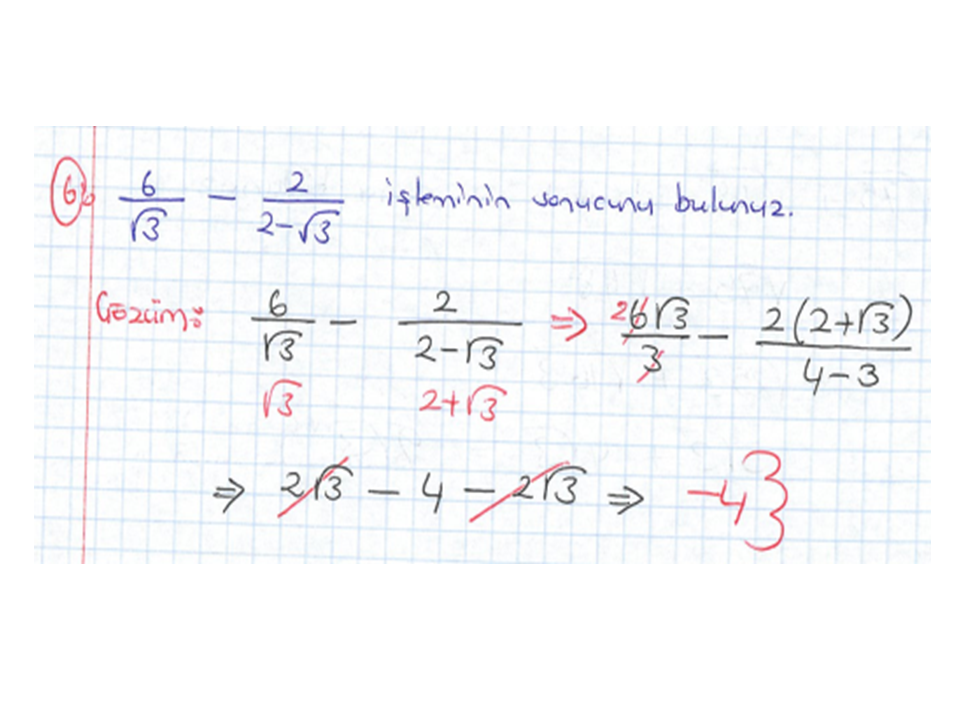 6) 6/√3 - 2/(2-√3) işleminin sonucunu bulunuz.
Çözüm: 6/√3 - 2/(2-√3) ⇒ 2 6√3/3 - 2(2+√3)/(4-3)
√3 2+√3
⇒ 2√3 - 4 - 2√3 ⇒ -4